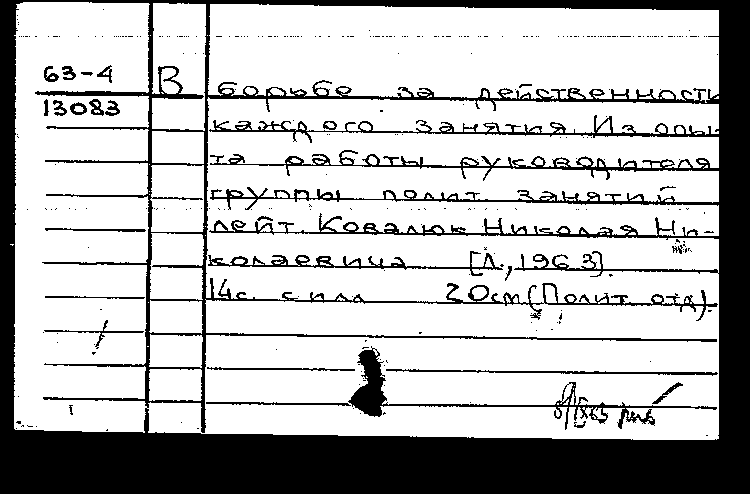 63-4 В борьбе за действенность
13083
каждого занятия. Из опы-
та работы руководителя
группы полит. занятий
лейт. Ковалюк Николая Ни-
колаевича [Л., 1963].
14с. с илл 20см (Полит. отд).